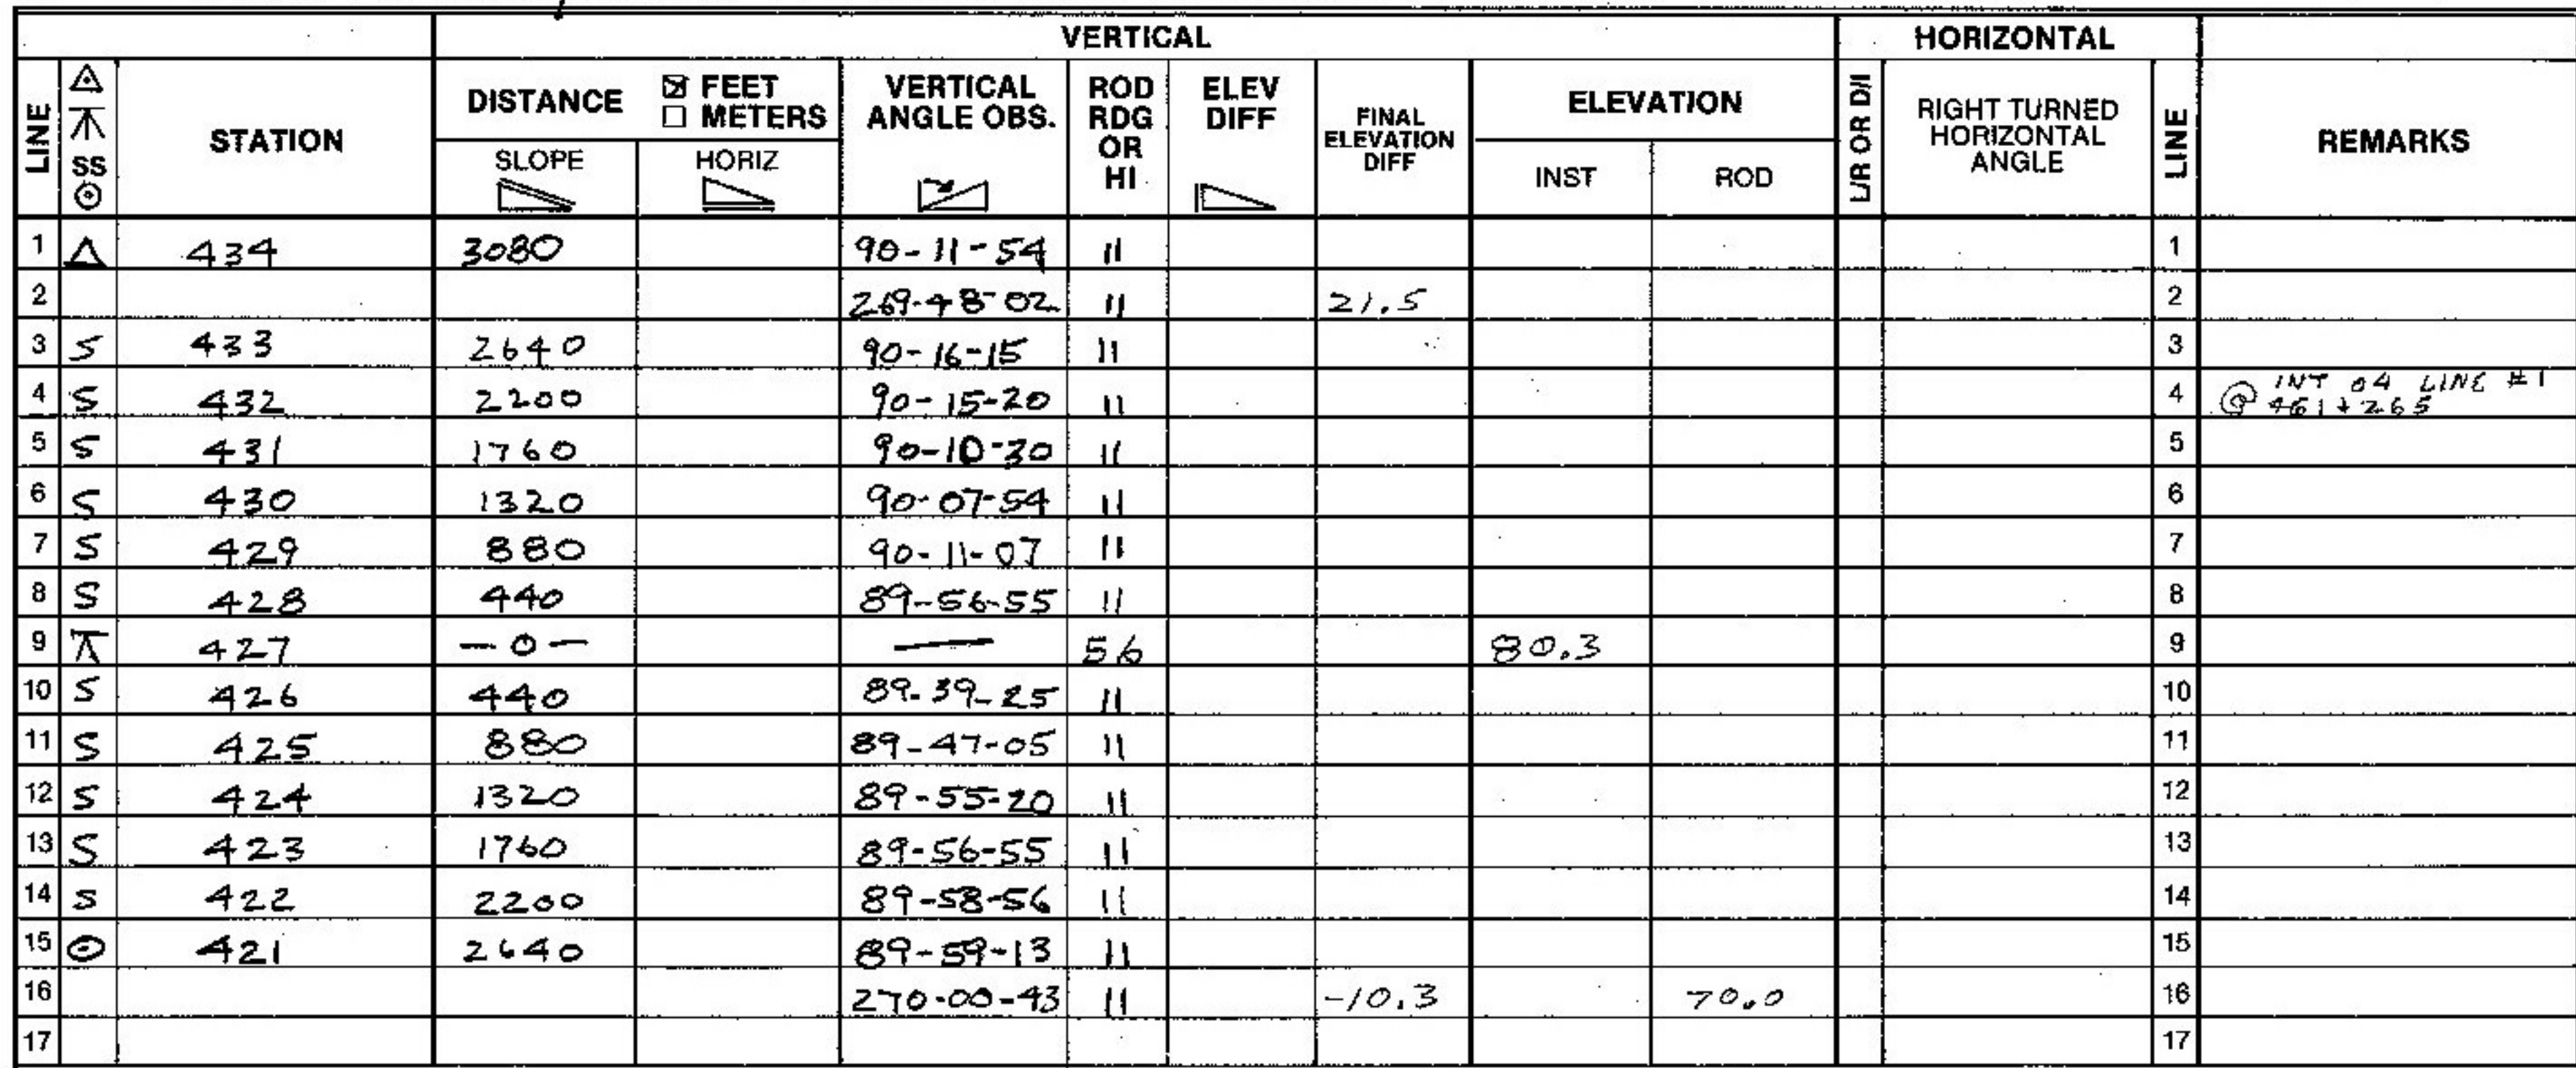 VERTICAL HORIZONTAL
LINE SS STATION DISTANCE ☒ FEET ☐ METERS SLOPE HORIZ VERTICAL ANGLE OBS. ROD RDG OR HI ELEV DIFF FINAL ELEVATION DIFF ELEVATION INST ROD L/R OR D/I RIGHT TURNED HORIZONTAL ANGLE LINE REMARKS
1 △ 434 3080 90-11-54 11 1
2 269-48-02 11 21.5 2
3 S 433 2640 90-16-15 11 3
4 S 432 2200 90-15-20 11 4 @ INT 04 LINE #1 461+265
5 S 431 1760 90-10-30 11 5
6 S 430 1320 90-07-54 11 6
7 S 429 880 90-11-07 11 7
8 S 428 440 89-56-55 11 8
9 427 -0- — 56 80.3 9
10 S 426 440 89-39-25 11 10
11 S 425 880 89-47-05 11 11
12 S 424 1320 89-55-20 11 12
13 S 423 1760 89-56-55 11 13
14 S 422 2200 89-58-56 11 14
15 ⊙ 421 2640 89-59-13 11 15
16 270-00-43 11 -10.3 70.0 16
17 17